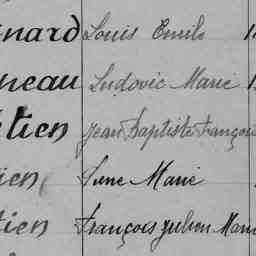 nard Louis Emile
neau Ludovic Marie
tien Jean Baptiste François
ien Marie
tien François Julien Mari